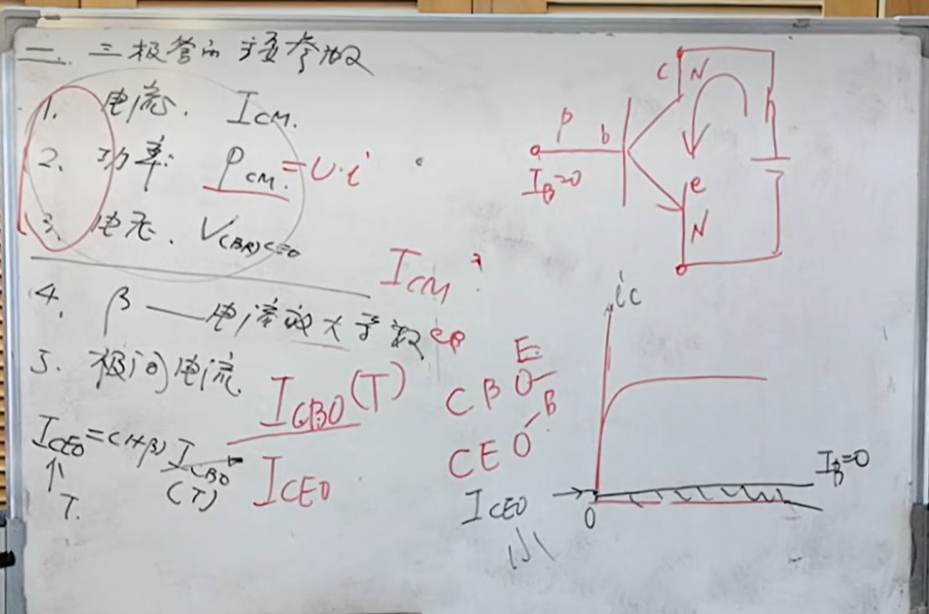 二、三极管的主要参数
1. 电流. I_CM.
2. 功率: P_CM. = U·i
3. 电压. V_(BR)CEO
I_CM
4. β — 电流放大系数
5. 极间电流.
I_CBO(T)
I_CEO
I_CEO=(1+β) I_CBO (T)
↑
T.
C N
P b
I_B=0
e
N
E
CBO
B
CEO
i_C
I_B=0
I_CEO →
0